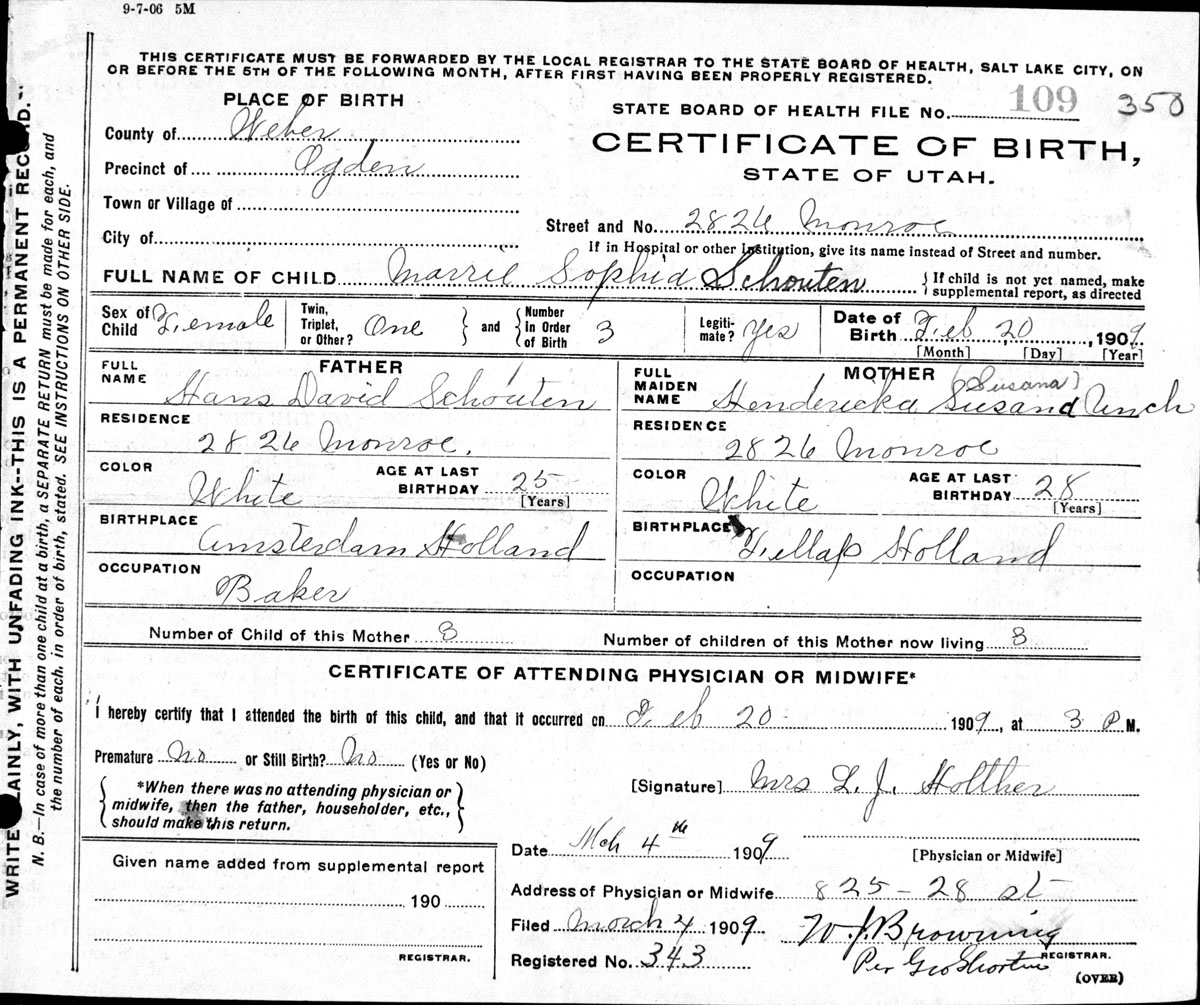 9-7-06 5M
THIS CERTIFICATE MUST BE FORWARDED BY THE LOCAL REGISTRAR TO THE STATE BOARD OF HEALTH, SALT LAKE CITY, ON
OR BEFORE THE 5TH OF THE FOLLOWING MONTH, AFTER FIRST HAVING BEEN PROPERLY REGISTERED.
PLACE OF BIRTH
STATE BOARD OF HEALTH FILE No. 109 350
County of Weber
CERTIFICATE OF BIRTH,
Precinct of Ogden
STATE OF UTAH.
Town or Village of
Street and No. 2826 Monroe
City of
If in Hospital or other Institution, give its name instead of Street and number.
FULL NAME OF CHILD Marrie Sophia Schouten
{ If child is not yet named, make
supplemental report, as directed
Sex of Child Female
Twin, Triplet, or Other? One } and { Number in Order of Birth 3
Legiti- mate? Yes
Date of Birth Feb 20, 1909
[Month] [Day] [Year]
FATHER
FULL NAME Hans David Schouten
RESIDENCE
2826 Monroe.
COLOR White AGE AT LAST BIRTHDAY 25
[Years]
BIRTHPLACE
Amsterdam Holland
OCCUPATION
Baker
MOTHER
(Susana)
FULL MAIDEN NAME Hendericka Unch
RESIDENCE
2826 Monroe
COLOR White AGE AT LAST BIRTHDAY 28
[Years]
BIRTHPLACE
Holland
OCCUPATION
Number of Child of this Mother 3 Number of children of this Mother now living 3
CERTIFICATE OF ATTENDING PHYSICIAN OR MIDWIFE*
I hereby certify that I attended the birth of this child, and that it occurred on Feb 20 1909, at 3 P M.
Premature No or Still Birth? No (Yes or No)
{ *When there was no attending physician or
midwife, then the father, householder, etc.,
should make this return. }
[Signature] Mrs L. J. Holther
[Physician or Midwife]
Date Mch 4th 1909
Address of Physician or Midwife 825 - 28 st
Filed March 4 1909 W. J. Browning
REGISTRAR.
Registered No. 343 Per Geo
(OVER)
Given name added from supplemental report
190
REGISTRAR.
WRITE PLAINLY, WITH UNFADING INK--THIS IS A PERMANENT RECORD.
N. B.—In case of more than one child at a birth, a SEPARATE RETURN must be made for each, and
the number of each, in order of birth, stated. SEE INSTRUCTIONS ON OTHER SIDE.